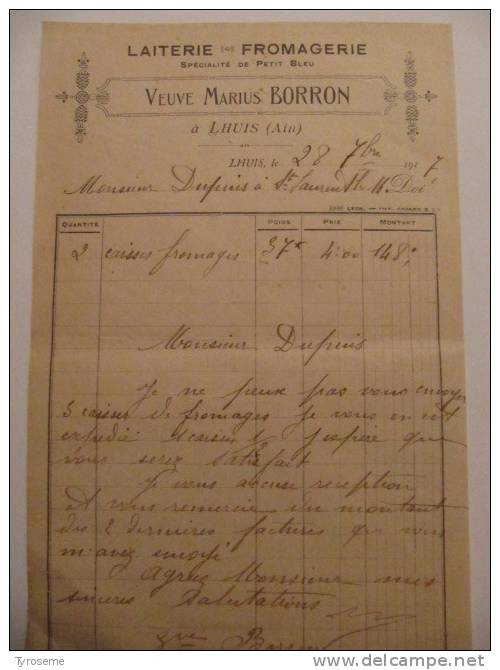 LAITERIE FROMAGERIE
SPÉCIALITÉ DE PETIT BLEU
VEUVE MARIUS BORRON
à LHUIS (Ain)
LHUIS, le 28 7bre 1917
Monsieur Dupuis à St Laurent
QUANTITÉ POIDS PRIX MONTANT
2 caisses fromages 37k 4.00 148
Monsieur Dupuis
Je ne peux pas vous envoyer
3 caisses de fromages Je vous en est
expédié caisses j'espère que
vous serez satisfait
Je vous accuse reception
et vous remercie du montant
des 2 dernières factures que vous
m'avez envoyé
Agréez Monsieur mes
sincères salutations
Vve Borron
Tyroseme
delcampe.net